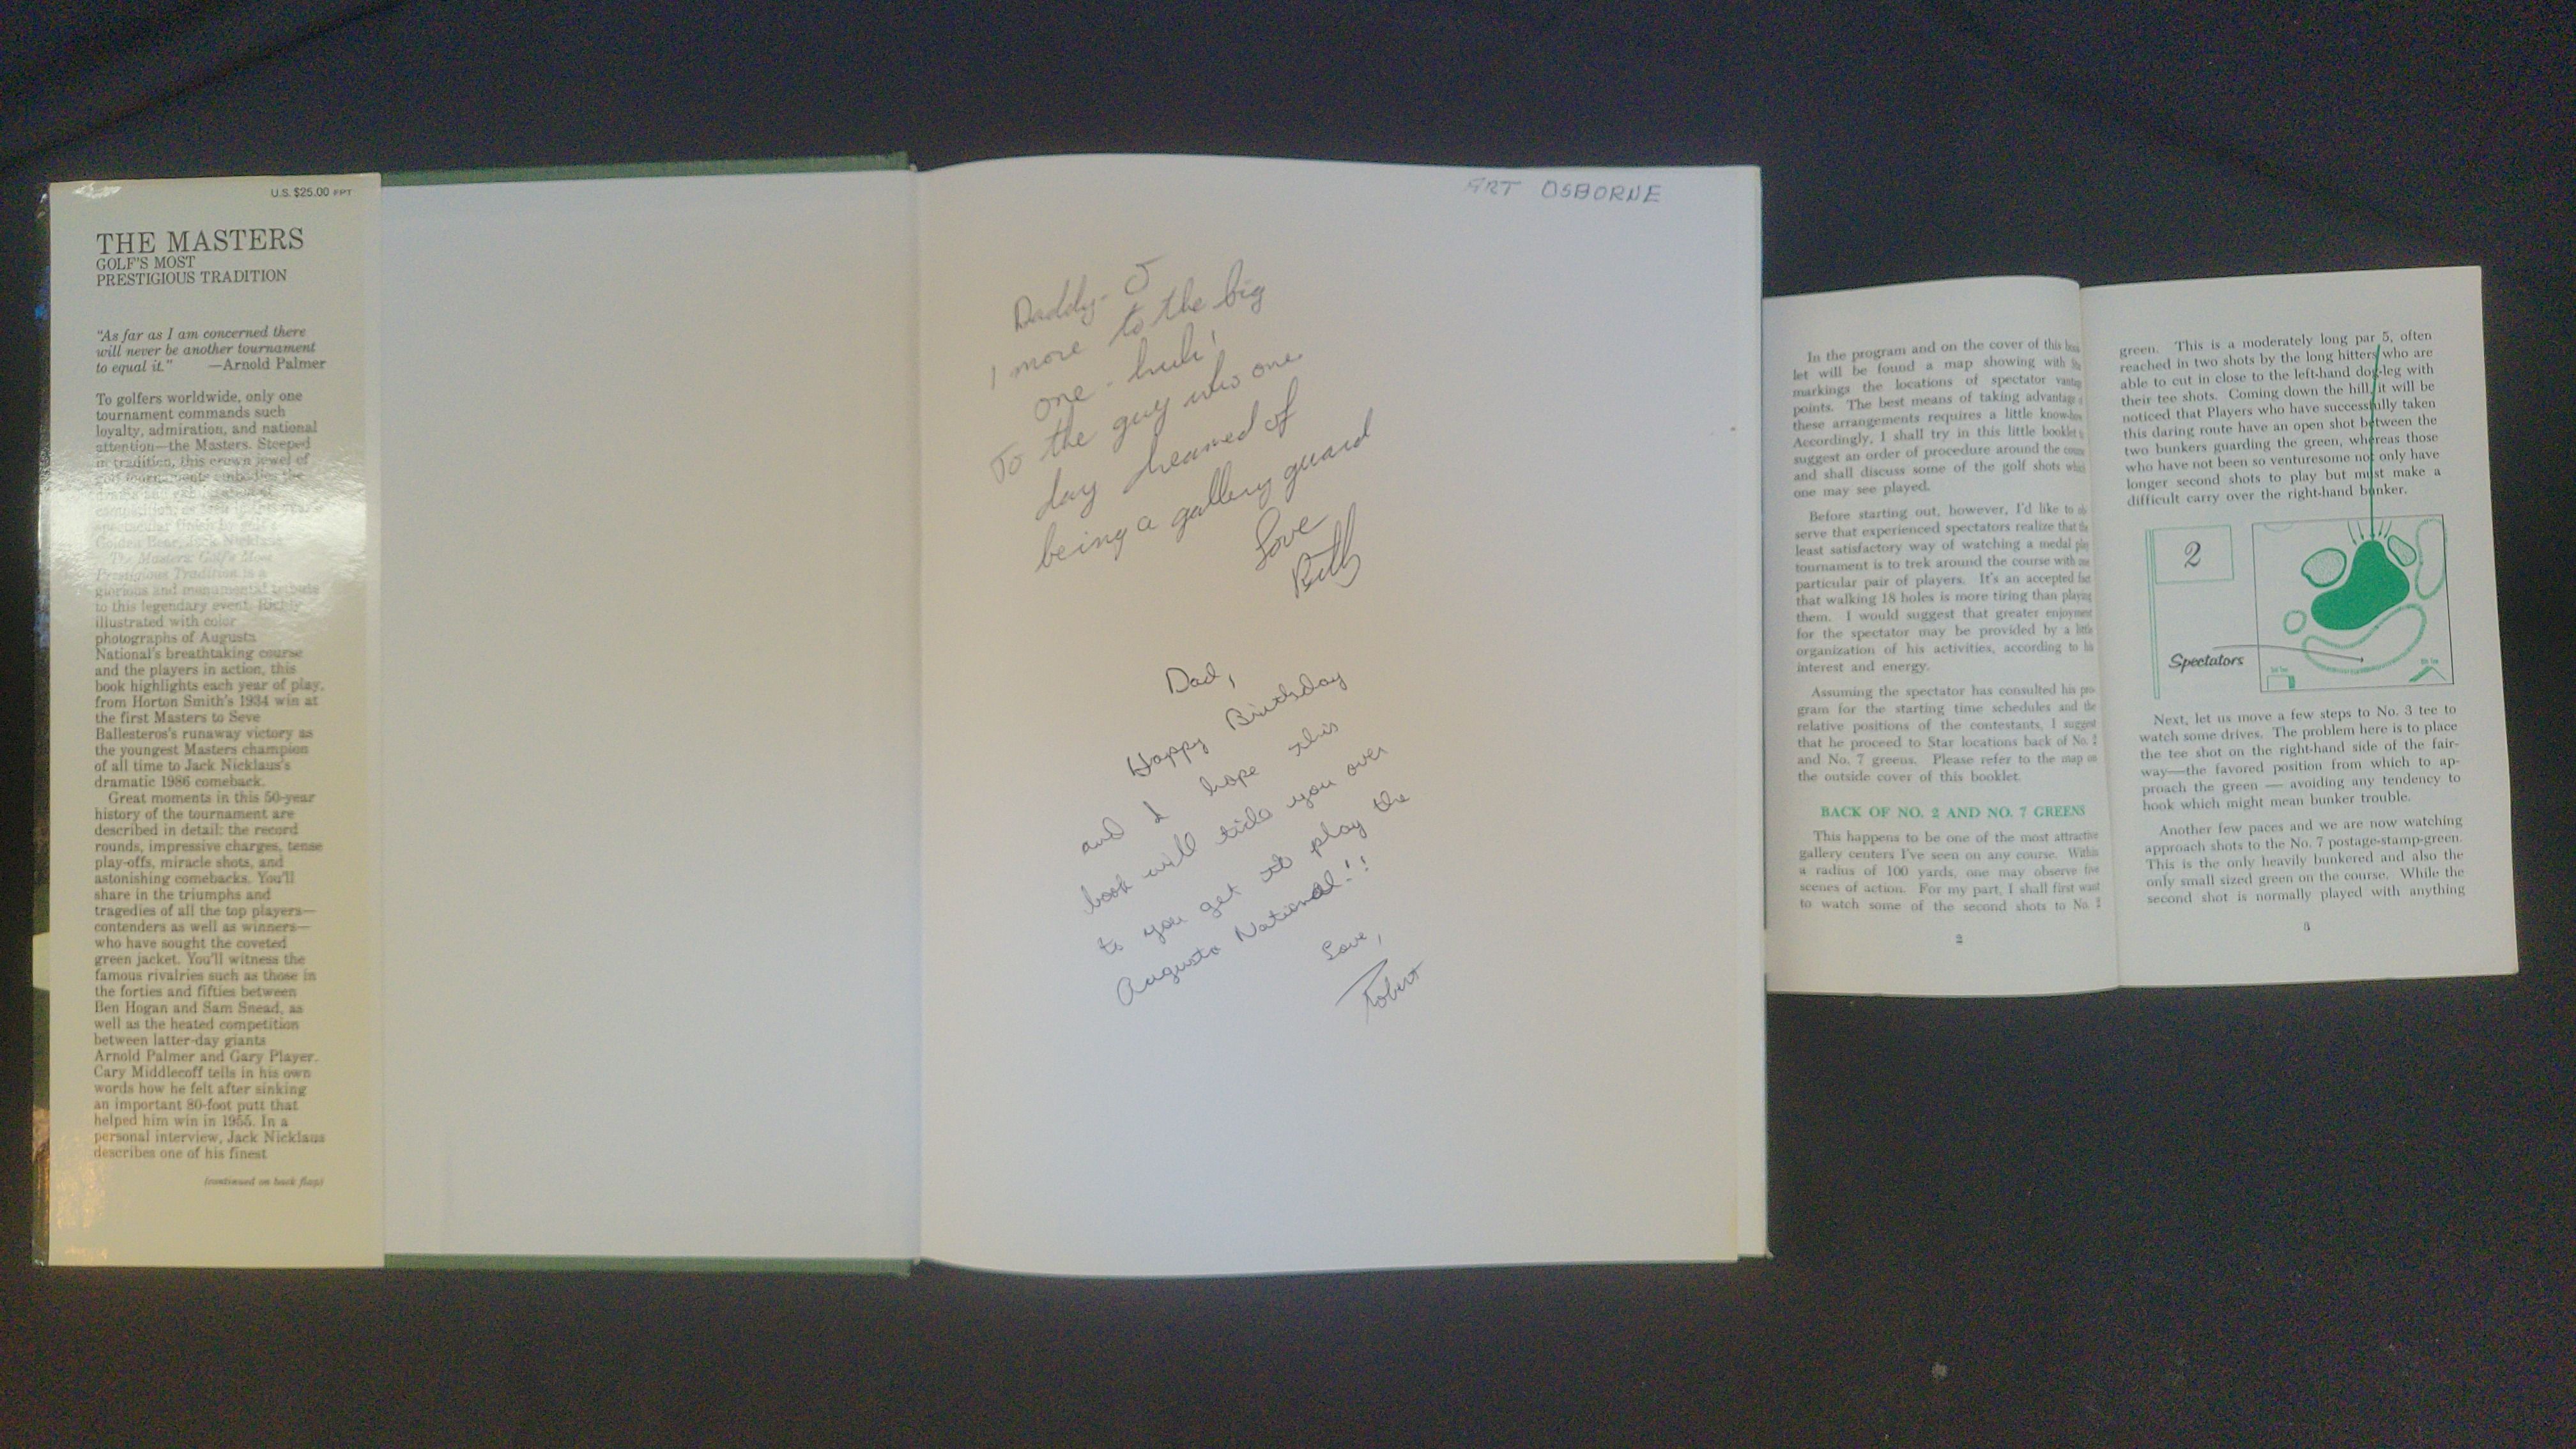 U.S. $25.00 FPT
THE MASTERS
GOLF'S MOST
PRESTIGIOUS TRADITION
"As far as I am concerned there
will never be another tournament
to equal it." —Arnold Palmer
To golfers worldwide, only one
tournament commands such
loyalty, admiration, and national
attention—the Masters. Steeped
in tradition, this crown jewel of
golf tournaments embodies the
drama and
competition, as seen in
spectacular finish by golf's
Golden Bear, Jack Nicklaus.
The Masters: Golf's Most
Prestigious Tradition is a
glorious and monumental tribute
to this legendary event. Richly
illustrated with color
photographs of Augusta
National's breathtaking course
and the players in action, this
book highlights each year of play,
from Horton Smith's 1934 win at
the first Masters to Seve
Ballesteros's runaway victory as
the youngest Masters champion
of all time to Jack Nicklaus's
dramatic 1986 comeback.
Great moments in this 50-year
history of the tournament are
described in detail: the record
rounds, impressive charges, tense
play-offs, miracle shots, and
astonishing comebacks. You'll
share in the triumphs and
tragedies of all the top players—
contenders as well as winners—
who have sought the coveted
green jacket. You'll witness the
famous rivalries such as those in
the forties and fifties between
Ben Hogan and Sam Snead, as
well as the heated competition
between latter-day giants
Arnold Palmer and Gary Player.
Cary Middlecoff tells in his own
words how he felt after sinking
an important 80-foot putt that
helped him win in 1955. In a
personal interview, Jack Nicklaus
describes one of his finest
(continued on back flap)
ART OSBORNE
Daddy-O
1 more to the big
one - huh!
To the guy who one
day dreamed of
being a gallery guard
Love
Dad,
Happy Birthday
and I hope this
book will tide you over
to you get to play the
Augusta National!!
Love,
Robert
In the program and on the cover of this book-
let will be found a map showing with
markings the locations of spectator vantage
points. The best means of taking advantage of
these arrangements requires a little know-how.
Accordingly, I shall try in this little booklet to
suggest an order of procedure around the course
and shall discuss some of the golf shots which
one may see played.
Before starting out, however, I'd like to ob-
serve that experienced spectators realize that the
least satisfactory way of watching a medal play
tournament is to trek around the course with one
particular pair of players. It's an accepted fact
that walking 18 holes is more tiring than playing
them. I would suggest that greater enjoyment
for the spectator may be provided by a little
organization of his activities, according to his
interest and energy.
Assuming the spectator has consulted his pro-
gram for the starting time schedules and the
relative positions of the contestants, I suggest
that he proceed to Star locations back of No. 2
and No. 7 greens. Please refer to the map on
the outside cover of this booklet.
BACK OF NO. 2 AND NO. 7 GREENS
This happens to be one of the most attractive
gallery centers I've seen on any course. Within
a radius of 100 yards, one may observe five
scenes of action. For my part, I shall first want
to watch some of the second shots to No. 2
2
green. This is a moderately long par 5, often
reached in two shots by the long hitters who are
able to cut in close to the left-hand dog-leg with
their tee shots. Coming down the hill, it will be
noticed that Players who have successfully taken
this daring route have an open shot between the
two bunkers guarding the green, whereas those
who have not been so venturesome not only have
longer second shots to play but must make a
difficult carry over the right-hand bunker.
2
Spectators
Next, let us move a few steps to No. 3 tee to
watch some drives. The problem here is to place
the tee shot on the right-hand side of the fair-
way—the favored position from which to ap-
proach the green — avoiding any tendency to
hook which might mean bunker trouble.
Another few paces and we are now watching
approach shots to the No. 7 postage-stamp-green.
This is the only heavily bunkered and also the
only small sized green on the course. While the
second shot is normally played with anything
3